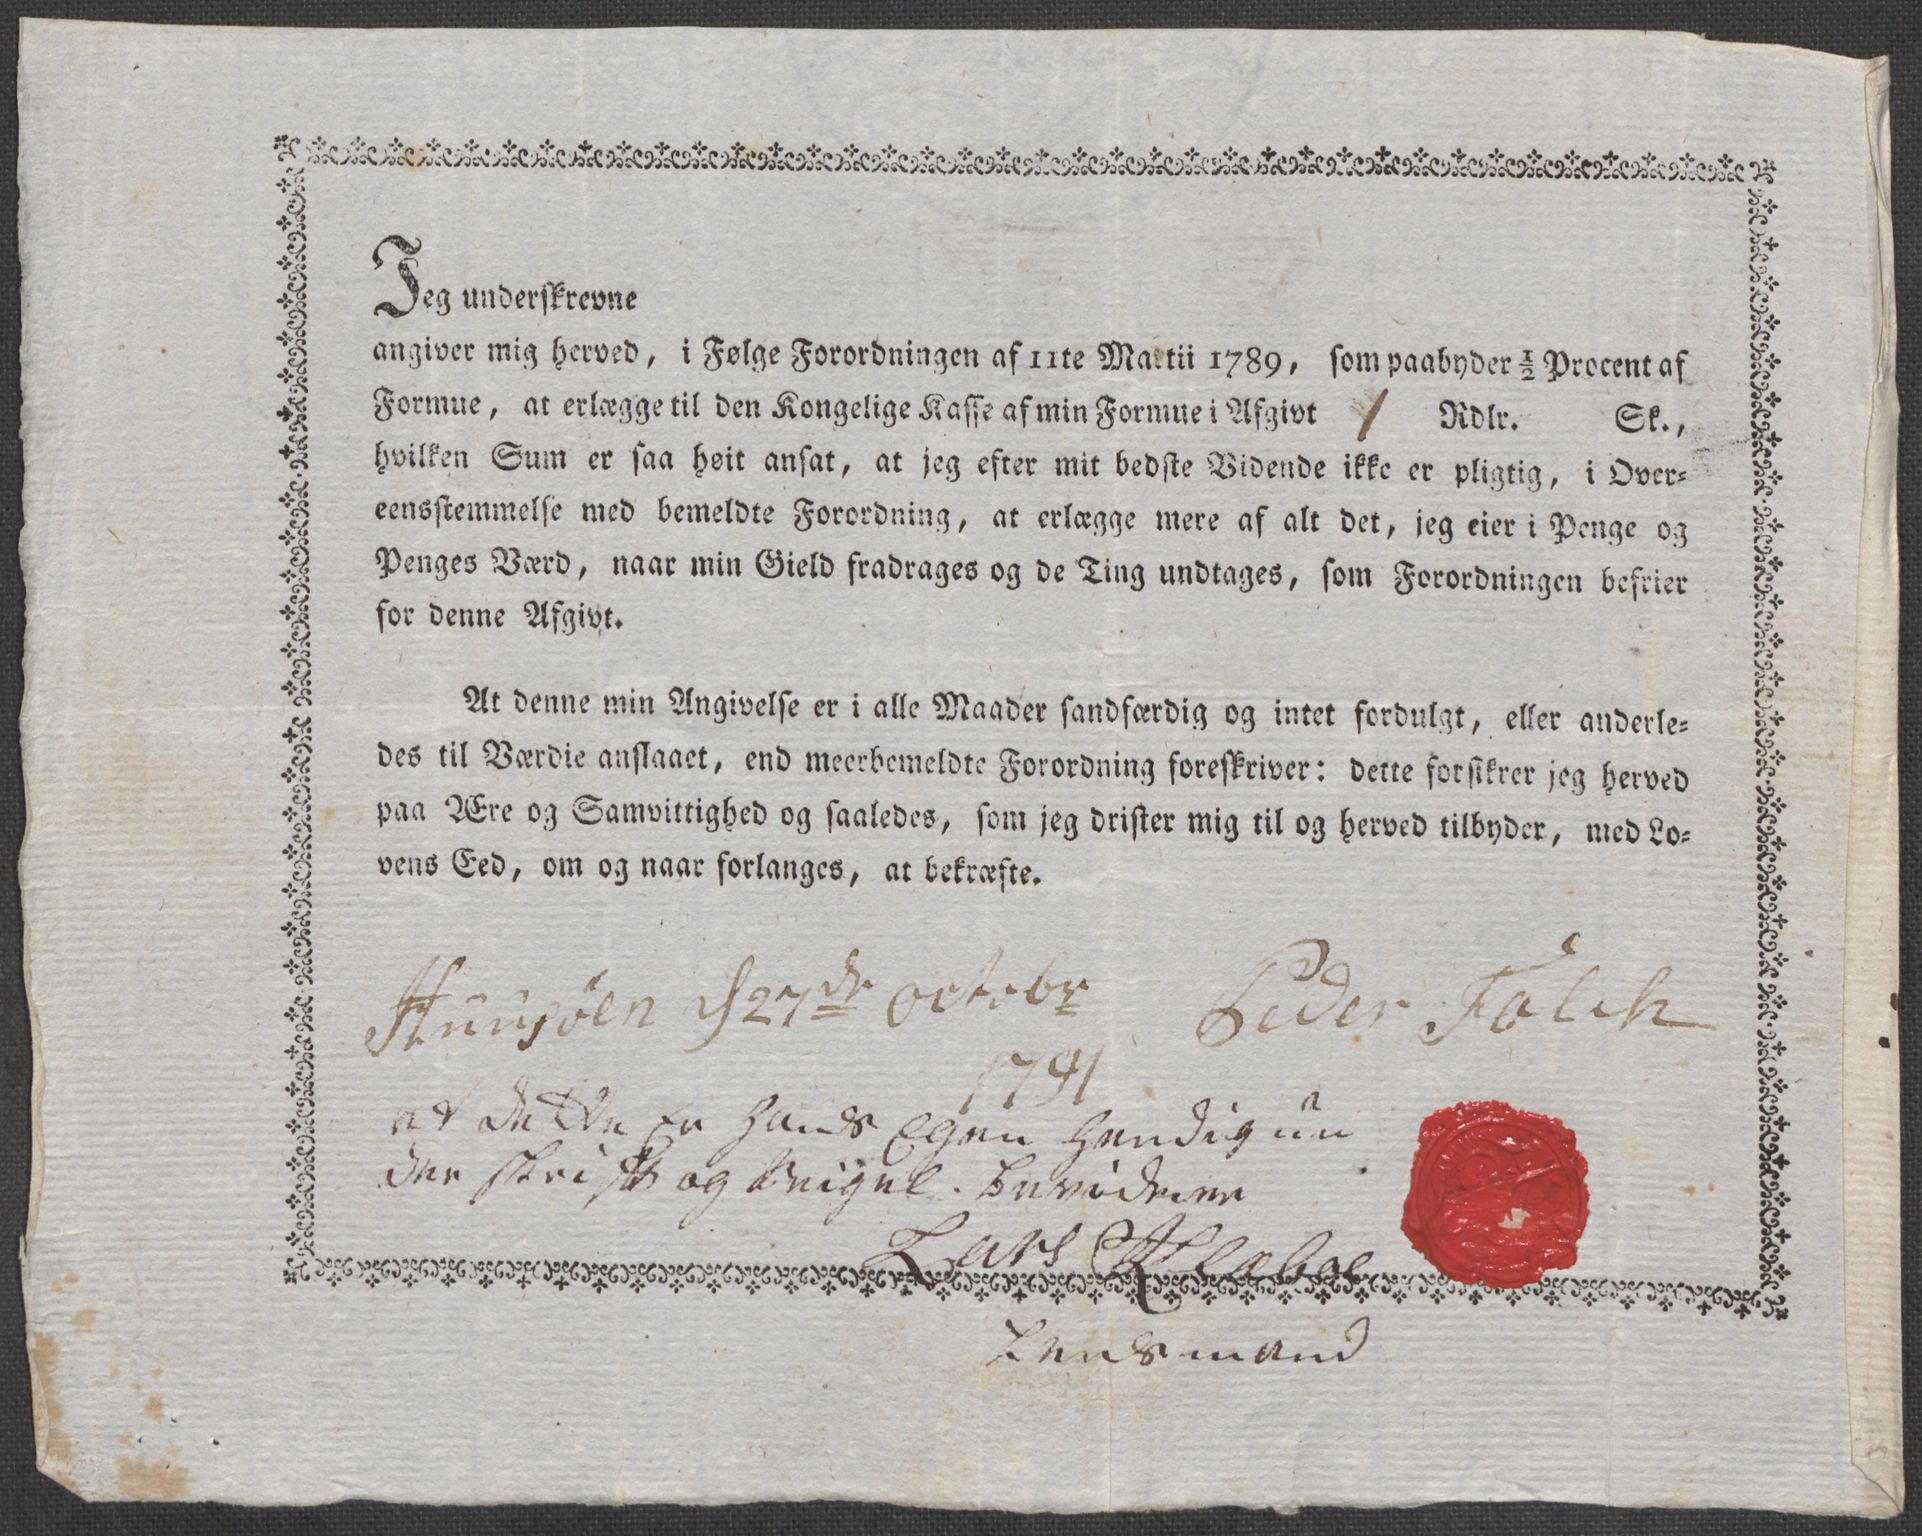 Jeg underskrevne
angiver mig herved, i Følge Forordningen af 11te Martii 1789, som paabyder ½ Procent af
Formue, at erlægge til den Kongelige Kasse af min Formue i Afgivt 1 Rdlr. Sk.,
hvilken Sum er saa høit ansat, at jeg efter mit bedste Vidende ikke er pligtig, i Over-
eensstemmelse med bemeldte Forordning, at erlægge mere af alt det, jeg eier i Penge og
Penges Værd, naar min Gield fradrages og de Ting undtages, som Forordningen befrier
for denne Afgivt.
At denne min Angivelse er i alle Maader sandfærdig og intet fordulgt, eller anderle-
des til Værdie anslaaet, end meerbemeldte Forordning foreskriver: dette forsikrer jeg herved
paa Ære og Samvittighed og saaledes, som jeg drister mig til og herved tilbyder, med Lo-
vens Eed, om og naar forlanges, at bekræfte.
d 27de octobr Peder Falch
1791
at dette er hands Egen hendig un
der skrift og Seigel.
Lars Klæboe
Lensmand